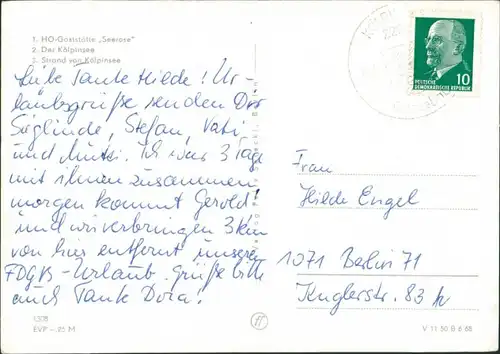 1. HO-Gaststätte „Seerose"
2. Der Kölpinsee
3. Strand von Kölpinsee
Liebe Tante Hilde! Ur-
laubsgrüße senden Dir
Sieglinde, Stefan, Vati
und Mutti. Ich war 3 Tage
mit ihnen zusammen
morgen kommt Gerold!
und wir verbringen 3 km
von hier entfernt unseren
FDGB-Urlaub. Grüße bitte
auch Tante Dora!
DEUTSCHE
DEMOKRATISCHE REPUBLIK
10
Frau
Hilde Engel
1071 Berlin 71
Kuglerstr. 83
EVP –.25 M
V 11 50 B 6 68